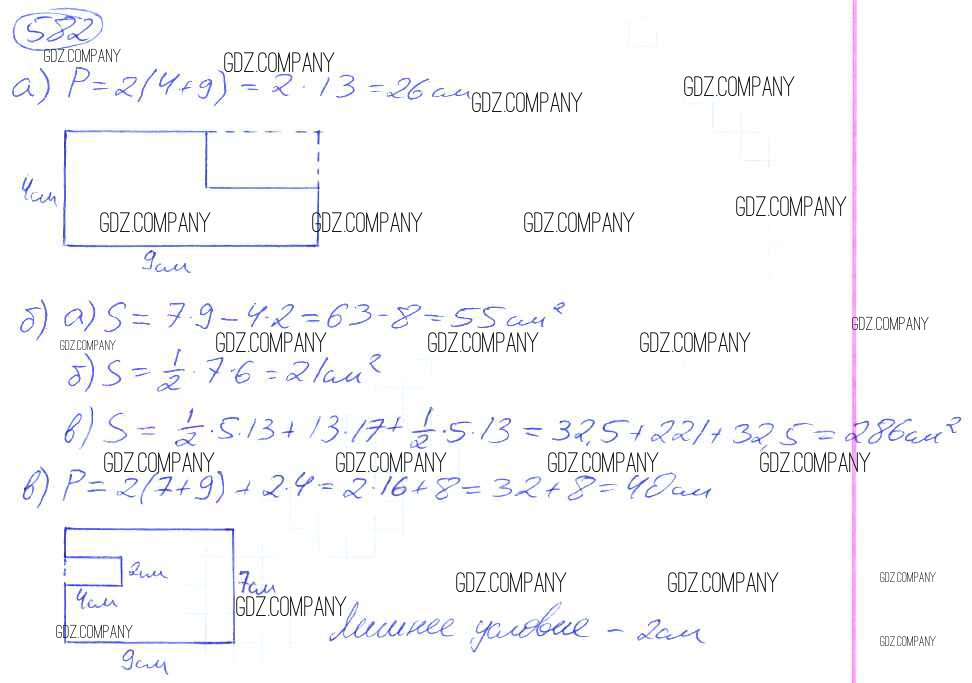 582
GDZ.COMPANY
GDZ.COMPANY
а) P = 2(4+9) = 2 · 13 = 26 см
GDZ.COMPANY
GDZ.COMPANY
4см
GDZ.COMPANY
GDZ.COMPANY
GDZ.COMPANY
GDZ.COMPANY
9см
б) а) S = 7·9 – 4·2 = 63 – 8 = 55 см²
GDZ.COMPANY
GDZ.COMPANY
GDZ.COMPANY
GDZ.COMPANY
GDZ.COMPANY
б) S = 1/2 · 7·6 = 21см²
в) S = 1/2 · 5·13 + 13·17 + 1/2 · 5·13 = 32,5 + 221 + 32,5 = 286см²
GDZ.COMPANY
GDZ.COMPANY
GDZ.COMPANY
GDZ.COMPANY
в) P = 2(7+9) + 2·4 = 2·16 + 8 = 32 + 8 = 40см
2см
7см
4см
GDZ.COMPANY
GDZ.COMPANY
GDZ.COMPANY
GDZ.COMPANY
GDZ.COMPANY
GDZ.COMPANY
Лишнее условие – 2см
9см